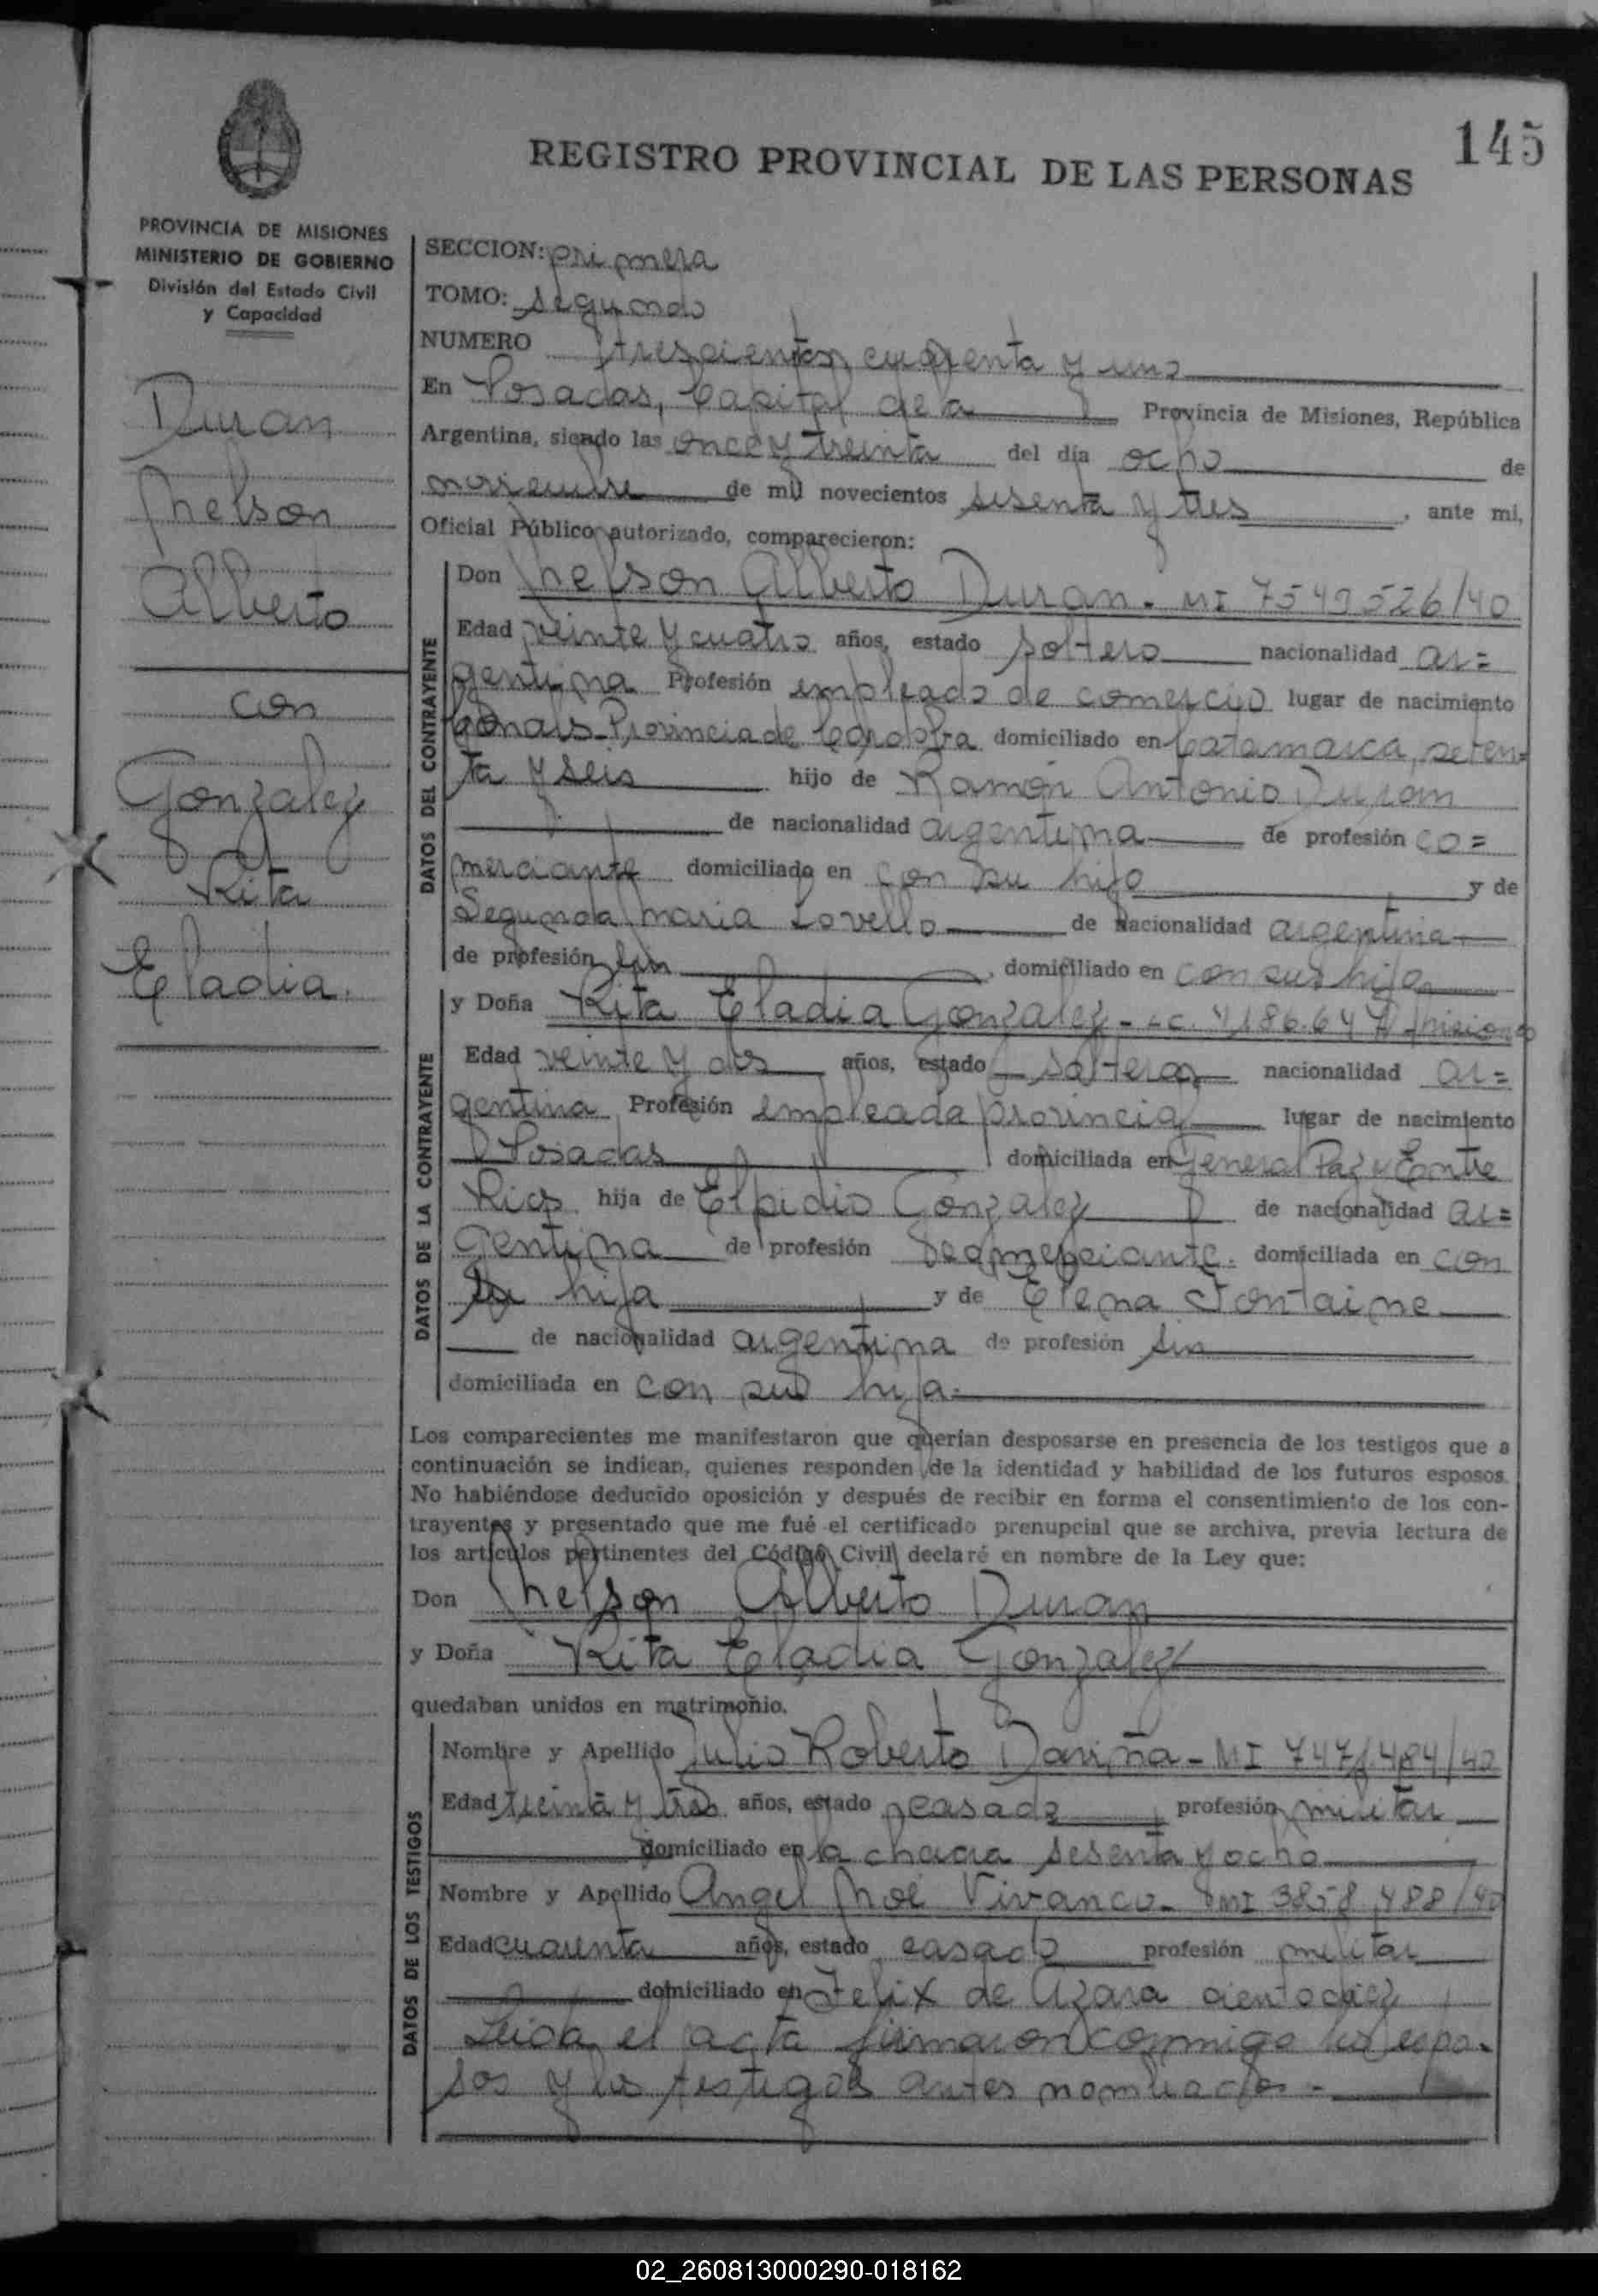 145
REGISTRO PROVINCIAL DE LAS PERSONAS
PROVINCIA DE MISIONES
MINISTERIO DE GOBIERNO
División del Estado Civil
y Capacidad
Duran
Nelson
Alberto
con
Gonzalez
Rita
Eladia.
SECCION: primera
TOMO: segundo
NUMERO trescientos cuarenta y uno
En Posadas, Capital de la Provincia de Misiones, República
Argentina, siendo las once y treinta del día ocho de
noviembre de mil novecientos sesenta y tres, ante mi,
Oficial Público autorizado, comparecieron:
DATOS DEL CONTRAYENTE
Don Nelson Alberto Duran. MI 7549526/40
Edad veinte y cuatro años, estado soltero nacionalidad ar=
gentina Profesión empleado de comercio lugar de nacimiento
Provincia de Cordoba domiciliado en Catamarca, seten=
ta y seis hijo de Ramón Antonio Duran
de nacionalidad argentina de profesión co=
merciante domiciliado en con su hijo y de
Segunda Maria Lovello de nacionalidad argentina
de profesión sin, domiciliado en con sus hijo
DATOS DE LA CONTRAYENTE
y Doña Rita Eladia Gonzalez - LC. Misiones
Edad veinte y dos años, estado soltera nacionalidad ar=
gentina Profesión empleada provincial lugar de nacimiento
Posadas domiciliada en General Paz y Entre
Rios hija de Elpidio Gonzalez de nacionalidad ar=
gentina de profesión domiciliada en con
su hija y de Elena Fontaine
de nacionalidad argentina de profesión sin
domiciliada en con su hija.
Los comparecientes me manifestaron que querían desposarse en presencia de los testigos que a
continuación se indican, quienes responden de la identidad y habilidad de los futuros esposos.
No habiéndose deducido oposición y después de recibir en forma el consentimiento de los con-
trayentes y presentado que me fué el certificado prenupcial que se archiva, previa lectura de
los artículos pertinentes del Código Civil declaré en nombre de la Ley que:
Don Nelson Alberto Duran
y Doña Rita Eladia Gonzalez
quedaban unidos en matrimonio.
DATOS DE LOS TESTIGOS
Nombre y Apellido Julio Roberto Dariña - MI
Edad treinta y tres años, estado casado profesión militar
domiciliado en la chacra sesenta y ocho
Nombre y Apellido Angel Noé Vivanco - MI 3858488/40
Edad cuarenta años, estado casado profesión militar
domiciliado en Felix de Azara ciento diez
Leida el acta firmaron conmigo los espo-
sos y los testigos antes nombrados.
02_260813000290-018162